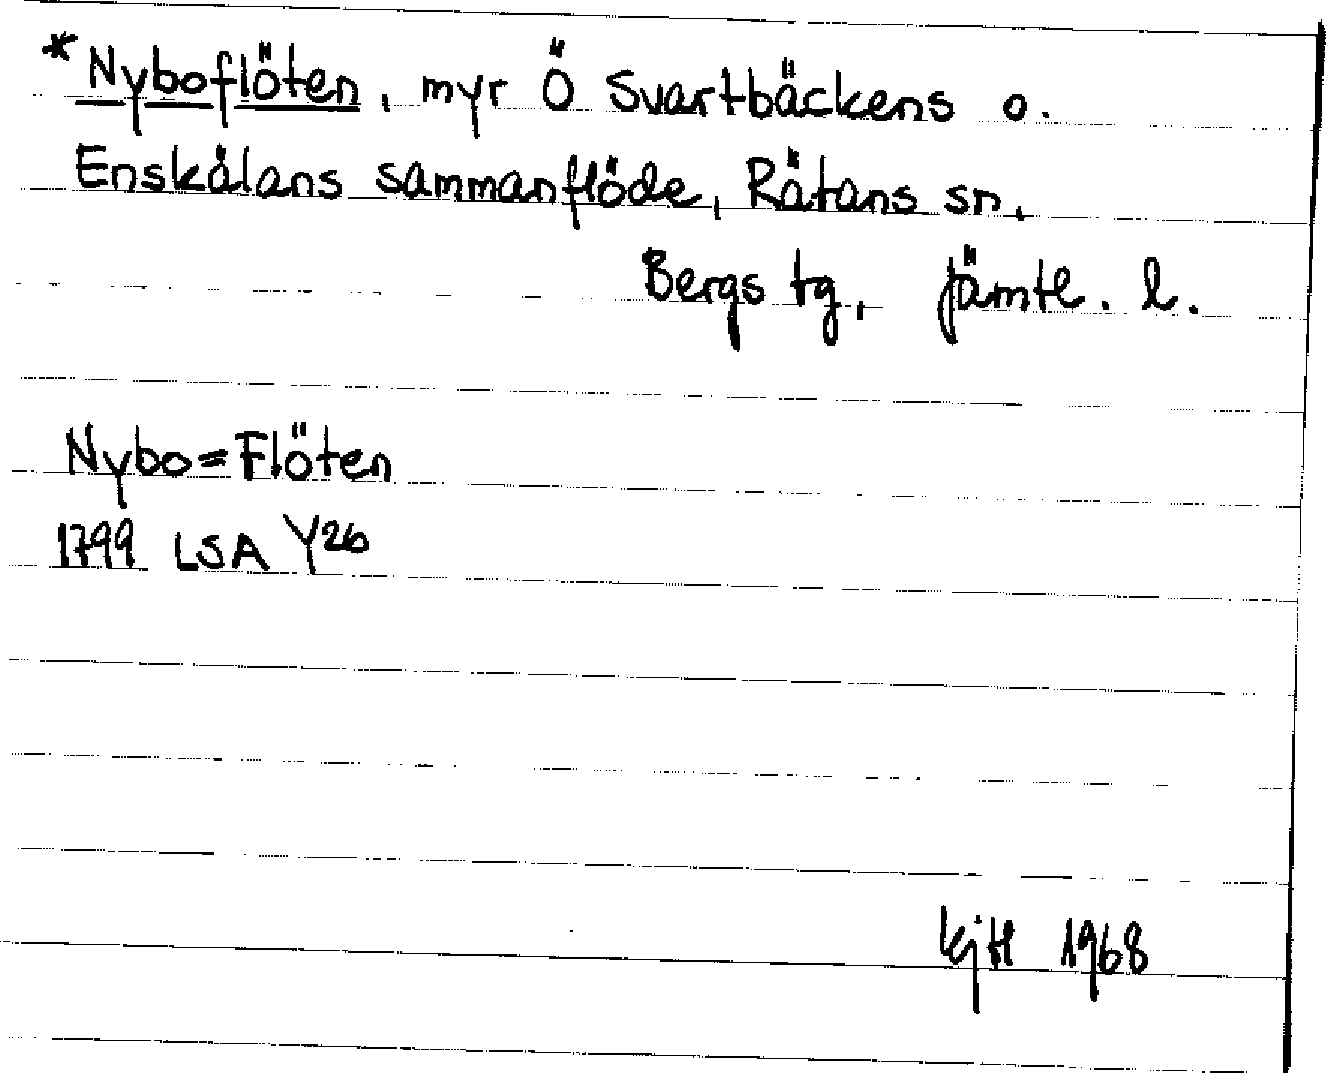 *Nyboflöten, myr Ö Svartbäckens o.
Enskålans sammanflöde, Rätans sn,
Bergs tg, Jämtl. l.
Nybo=Flöten
1799 LSA Y26
kjtl 1968